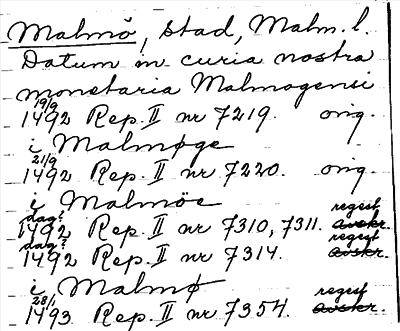 Malmö, stad, Malm. l.
Datum in curia nostra
monetaria Malmogensi
19/9
1492 Rep. II nr 7219. orig.
i Malmøge
21/9
1492 Rep. II nr 7220. orig.
i Malmöe
dag? regest
1492 Rep. II nr 7310, 7311. avskr.
dag? regest
1492 Rep. II nr 7314. avskr.
i Malmø
28/1 regest
1493 Rep. II nr 7354. avskr.